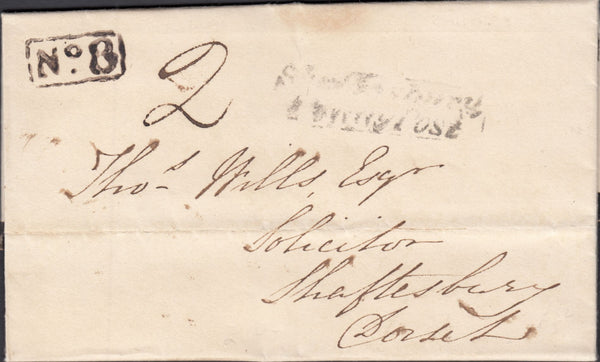 No. 8
2
Shaftesbury
Penny Post
Thos. Wills, Esqr
Solicitor
Shaftesbury
Dorset